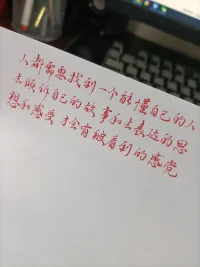 人都需要找到一个能懂自己的人
去倾诉自己的故事和去表达的思
想和感受才会有被看到的感觉